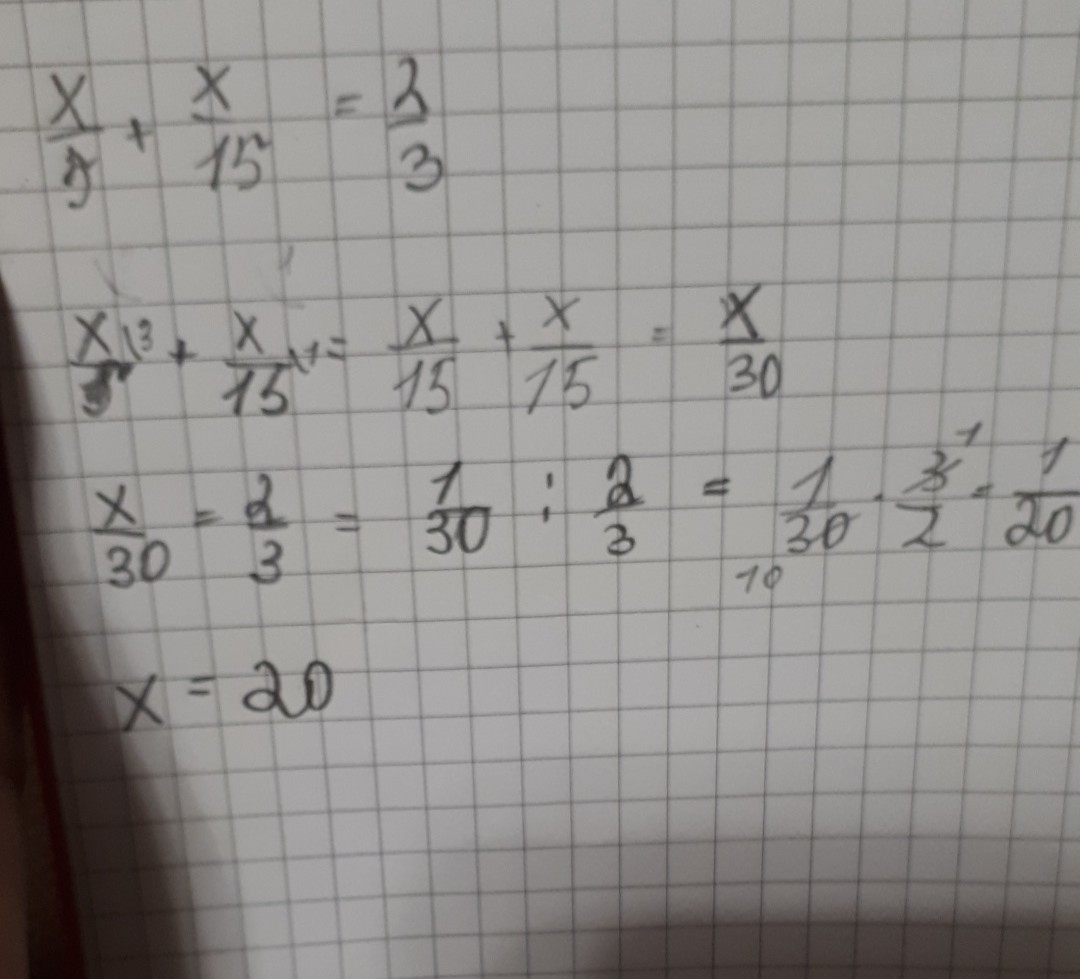 x/5 + x/15 = 2/3
x/5\3 + x/15\1 = x/15 + x/15 = x/30
x/30 = 2/3 = 1/30 : 2/3 = 1/30 10 · 3/2 1 = 1/20
x = 20